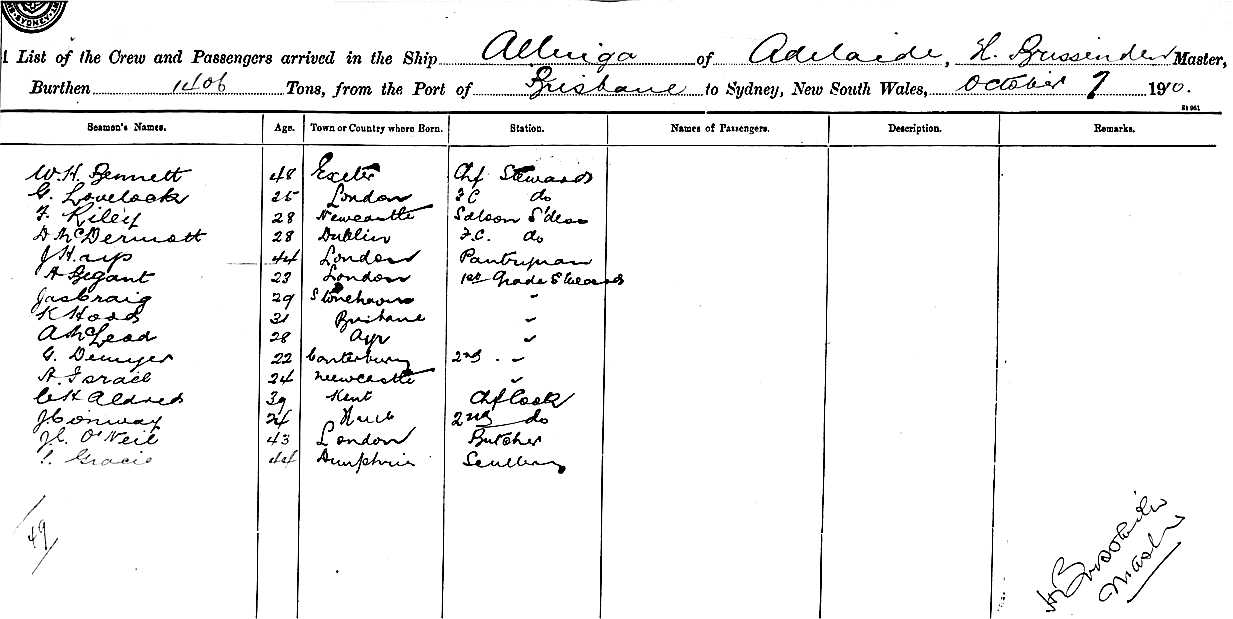 SYDNEY
List of the Crew and Passengers arrived in the Ship Allinga of Adelaide, H. Brissenden Master,
Burthen 1406 Tons, from the Port of Brisbane to Sydney, New South Wales, October 7 1910.
Seamen's Names. Age. Town or Country where Born. Station. Names of Passengers. Description. Remarks.
W. H. Bennett 48 Exeter Chf Steward
G. Lovelock 25 London F C do
F. Riley 28 Newcastle Saloon
D McDermott 28 Dublin F.C. do
J 44 London Pantryman
A Begant 23 London 1st Grade Steward
Jas Craig 29 Stonehaven "
K Hood 31 Brisbane "
A McLeod 28 Ayr "
G. 22 Canterbury 2nd "
A. Israel 24 Newcastle "
C H Aldred 39 Kent Chf Cook
J Conway 24 Hull 2nd do
J C. O'Neil 43 London Butcher
Gracie 44 Dumphries
49
H Brissenden
Master